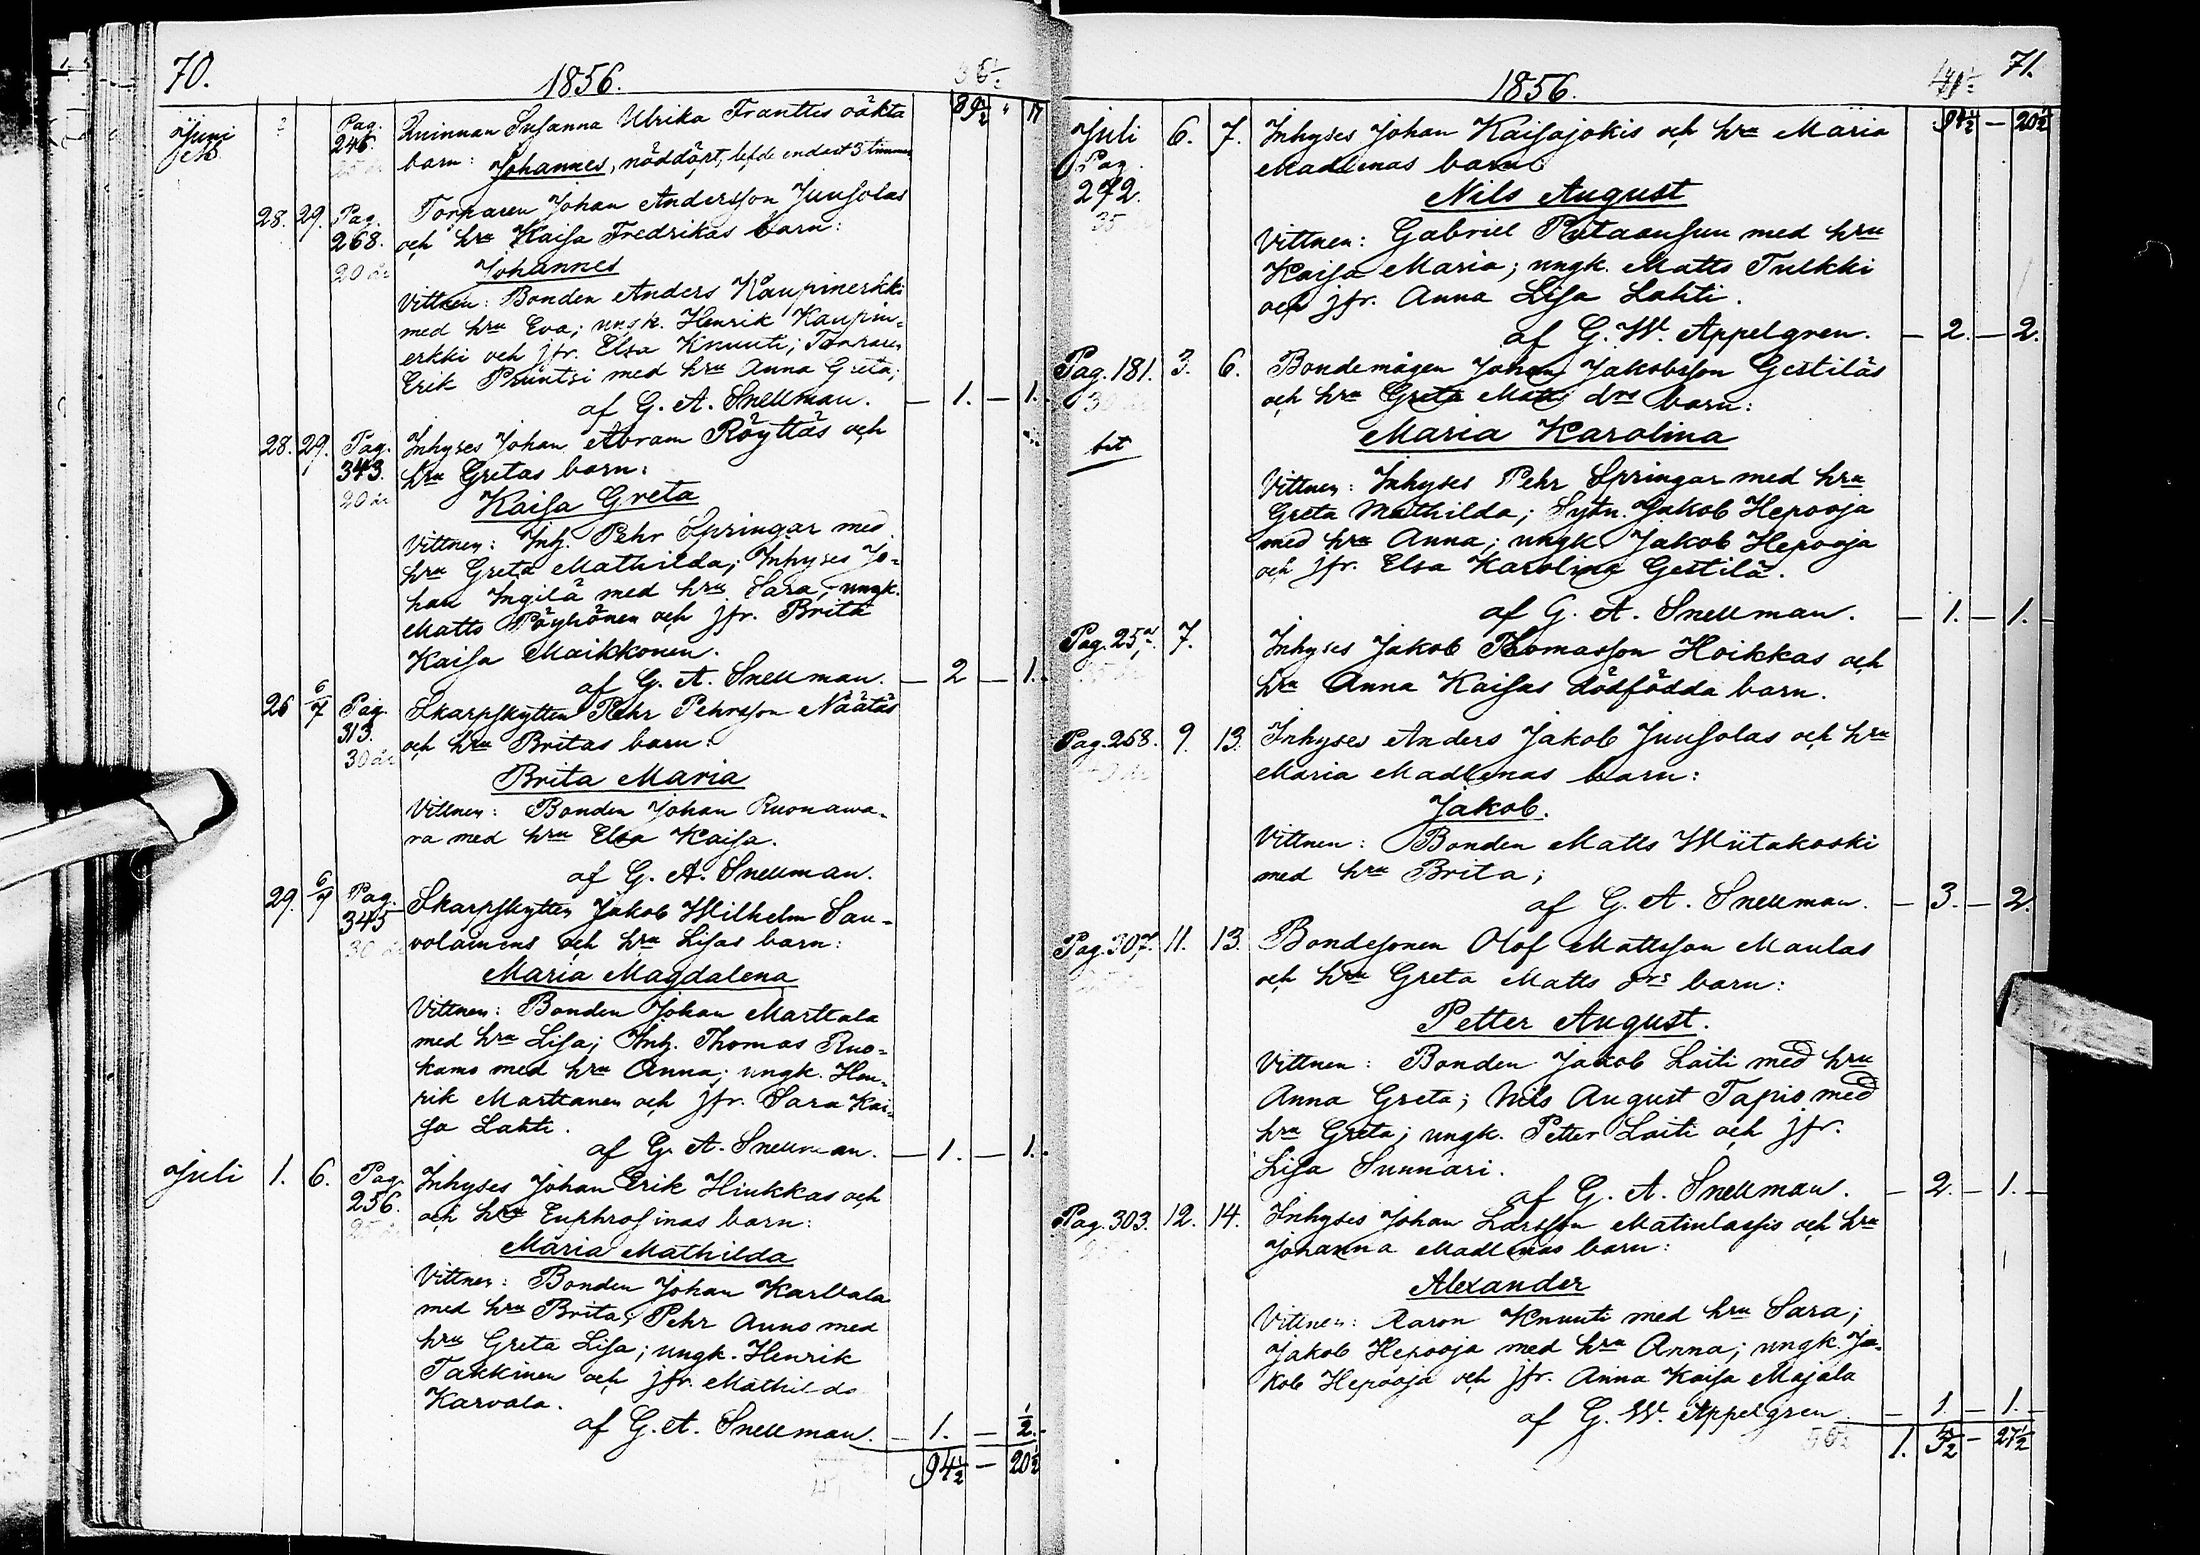 70.
1856.
89½ " 17
Juni
Pag. 246. Quinnan Susanna Ulrika Franttis oäkta
barn: Johannes, nöddöpt, lefde endast 5 timmar
28. 29. Pag. 268. Torparen Johan Andersson Juusolas
och hru Kaisa Fredrikas barn:
20 år
Johannes
Vittnen: Bonden Anders Kaupinerkki
med hru Eva; ungk. Henrik Kaupin-
erkki och jfr. Elsa Knuuti; Torparen
Erik Prüntsi med hru Anna Greta;
af G. A. Snellman. — 1. — 1.
28. 29. Pag. 343. Inhyses Johan Abram Röyttäs och
hru Gretas barn:
20 år
Kaisa Greta
Vittnen: Inh. Pehr Springar med
hru Greta Mathilda; Inhyses Jo-
han Ingilä med hru Sara; ungk.
Matts Pöyhönen och jfr. Brita
Kaisa Maikkonen.
af G. A. Snellman. — 2 — 1.
26 6/7 Pag. 313. Skarpskytten Pehr Pehrsson Näätäs
och hru Britas barn:
30 år
Brita Maria
Vittnen: Bonden Johan Ruonawa-
ra med hru Elsa Kaisa.
af G. A. Snellman.
29. 6/7 Pag. 345 Skarpskytten Jakob Wilhelm Sau-
volainens och hru Lisas barn:
30 år
Maria Magdalena
Vittnen: Bonden Johan Marttala
med hru Lisa; Inh. Thomas Ruo-
kamo med hru Anna; ungk. Hen-
rik Marttanen och jfr. Sara Kai-
sa Lahti.
af G. A. Snellman. — 1. — 1.
Juli 1. 6. Pag. 256. Inhyses Johan Erik Hiukkas och
och hru Euphrosinas barn:
Maria Mathilda
Vittnen: Bonden Johan Karvala
med hru Brita; Pehr Auno med
hru Greta Lisa; ungk. Henrik
Takkinen och jfr. Mathilda
Karvala.
af G. A. Snellman. — 1. — ½.
94½ — 20½
71.
1856.
94½ — 20½
Juli 6. 7. Inhyses Johan Kaisajokis och hru Maria
Pag. 272. Madlenas barn
Nils August
35
Vittnen: Gabriel Putaansuu med hru
Kaisa Maria; ungk. Matts Tulkki
och jfr. Anna Lisa Lahti.
af G. W. Appelgren. — 2. — 2.
Pag. 181. 3. 6. Bondemågen Johan Jakobsson Gestiläs
och hru Greta Matts drs barn:
Maria Karolina
Vittnen: Inhyses Pehr Springar med hru
Greta Mathilda; Sytn. Jakob Hepooja
med hru Anna; ungk. Jakob Hepooja
och jfr. Elsa Karolina Gestilä.
af G. A. Snellman. — 1. — 1.
Pag. 25 7. Inhyses Jakob Thomasson Hoikkas och
hru Anna Kaisas dödfödda barn.
Pag. 268. 9. 13. Inhyses Anders Jakob Juusolas och hru
Maria Madlenas barn:
Jakob.
Vittnen: Bonden Matts Wiitakoski
med hru Brita;
af G. A. Snellman. — 3. — 2.
Pag. 307. 11. 13. Bondesonen Olof Mattsson Maulas
och hru Greta Matts drs barn:
Petter August.
Vittnen: Bonden Jakob Laiti med hru
Anna Greta; Nils August Tapio med
hru Greta; ungk. Petter Laiti och jfr.
Lisa Sunnari.
af G. A. Snellman. — 2. — 1. —
Pag. 303. 12. 14. Inhyses Johan Larsson Matinlassis och hru
Johanna Madlenas barn:
Alexander
Vittnen: Aaron Knuuti med hru Sara;
Jakob Hepooja med hru Anna; ungk. Ja-
kob Hepooja och jfr. Anna Kaisa Majala
af G. W. Appelgren. — 1. — 1. —
27½